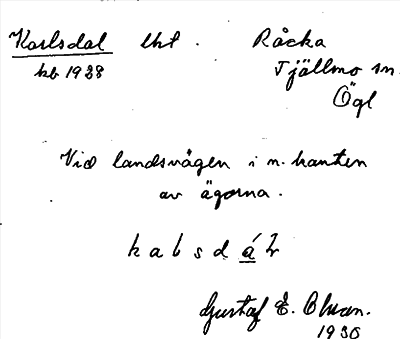 Karlsdal lht. Råcka
kb 1938 Tjällmo sn.
Ögl
Vid landsvägen i n. kanten
av ägorna.
kalsdáł
Gustaf E. Olsson.
1930